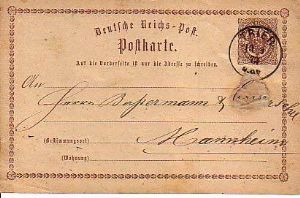 Deutsche Reichs-Post.
Postkarte.
Auf die Vorderseite ist nur die Adresse zu schreiben.
An
Herrn Bassermann &
Mannheim
(Bestimmungsort)
(Wohnung)